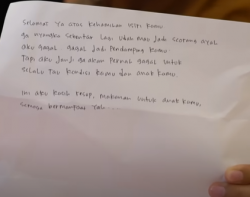 Selamat Ya atas kehamilan istri kamu
ga nyangka sebentar lagi udah mau jadi seorang ayah
aku gagal gagal jadi Pendamping kamu
Tapi aku janji ga akan pernah gagal untuk
selalu tau kondisi kamu dan anak kamu.
ini aku kasih resep, makanan untuk anak kamu,
semoga bermanfaat yah